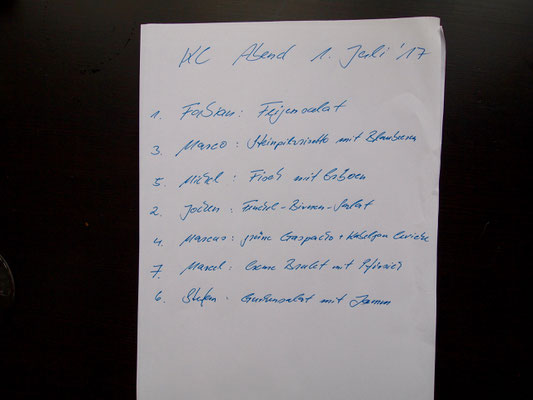 KC Abend 1. Juli '17
1. Fabian: Feigensalat
3. Marco: Steinpilzrisotto mit Blaubeeren
5. Michel: Fisch mit Erbsen
2. Jochen: Fenchel-Birnen-Salat
4. Marcus: grüne Gaspacho + Kabeljau Ceviche
7. Marcel: Creme Brulet mit Pfirsich
6. Stefan: Gurkensalat mit